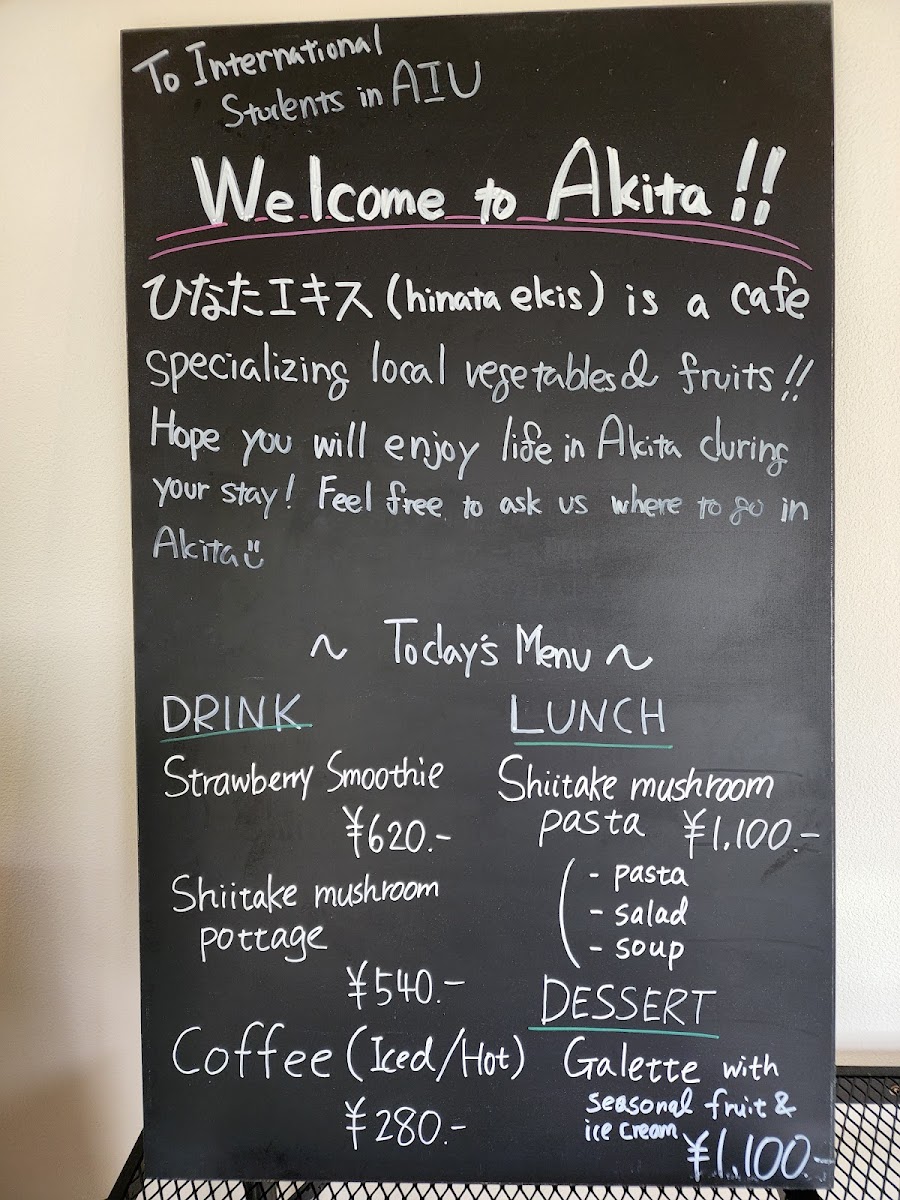 To International
Students in AIU
Welcome to Akita!!
ひなたエキス (hinata ekis) is a cafe
specializing local vegetables & fruits!!
Hope you will enjoy life in Akita during
your stay! Feel free to ask us where to go in
Akita
~ Today's Menu ~
DRINK
Strawberry Smoothie
¥620.-
Shiitake mushroom
pottage
¥540.-
Coffee (Iced/Hot)
¥280.-
LUNCH
Shiitake mushroom
pasta ¥1,100.-
- pasta
- salad
- soup
DESSERT
Galette with
seasonal fruit &
ice cream
¥1,100.-